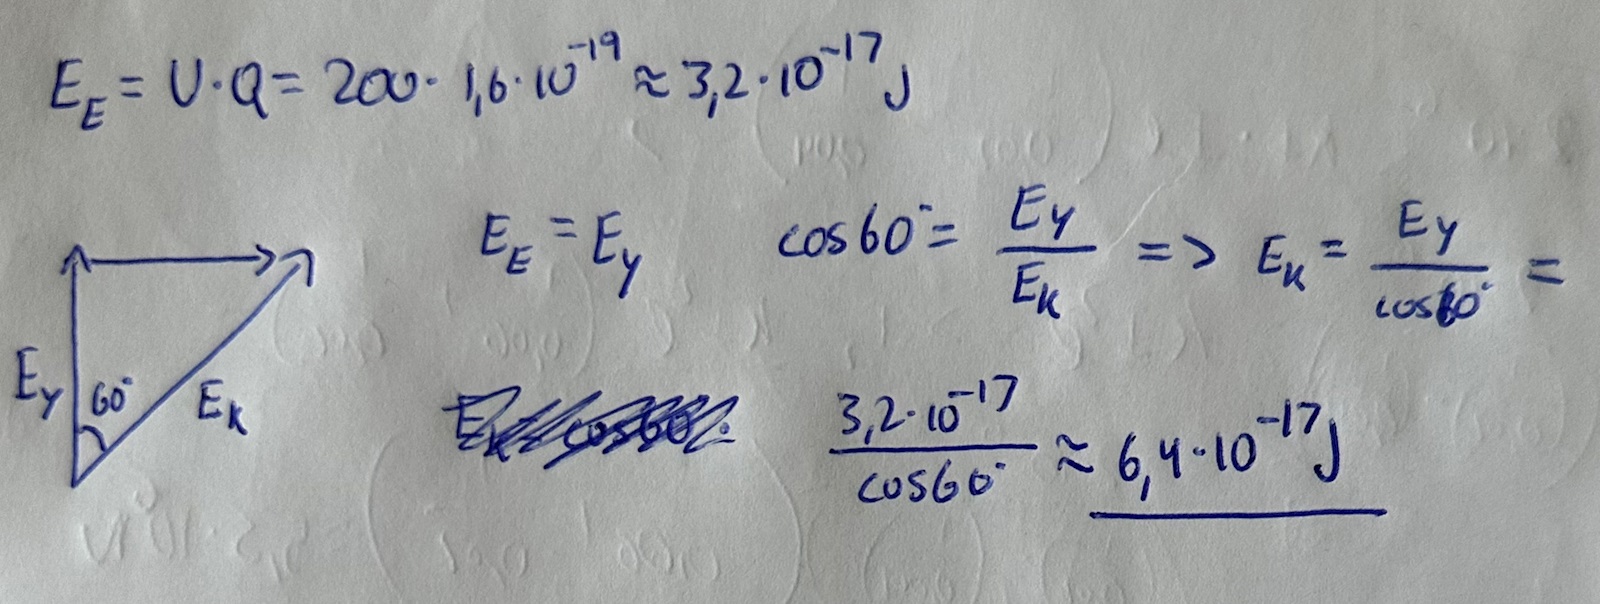 E_E = U·Q = 200· 1,6·10^-19 ≈ 3,2·10^-17 J
E_E = E_y cos60° = E_y / E_k => E_k = E_y / cos60° =
E_y 60° E_k
3,2·10^-17 / cos60° ≈ 6,4·10^-17 J